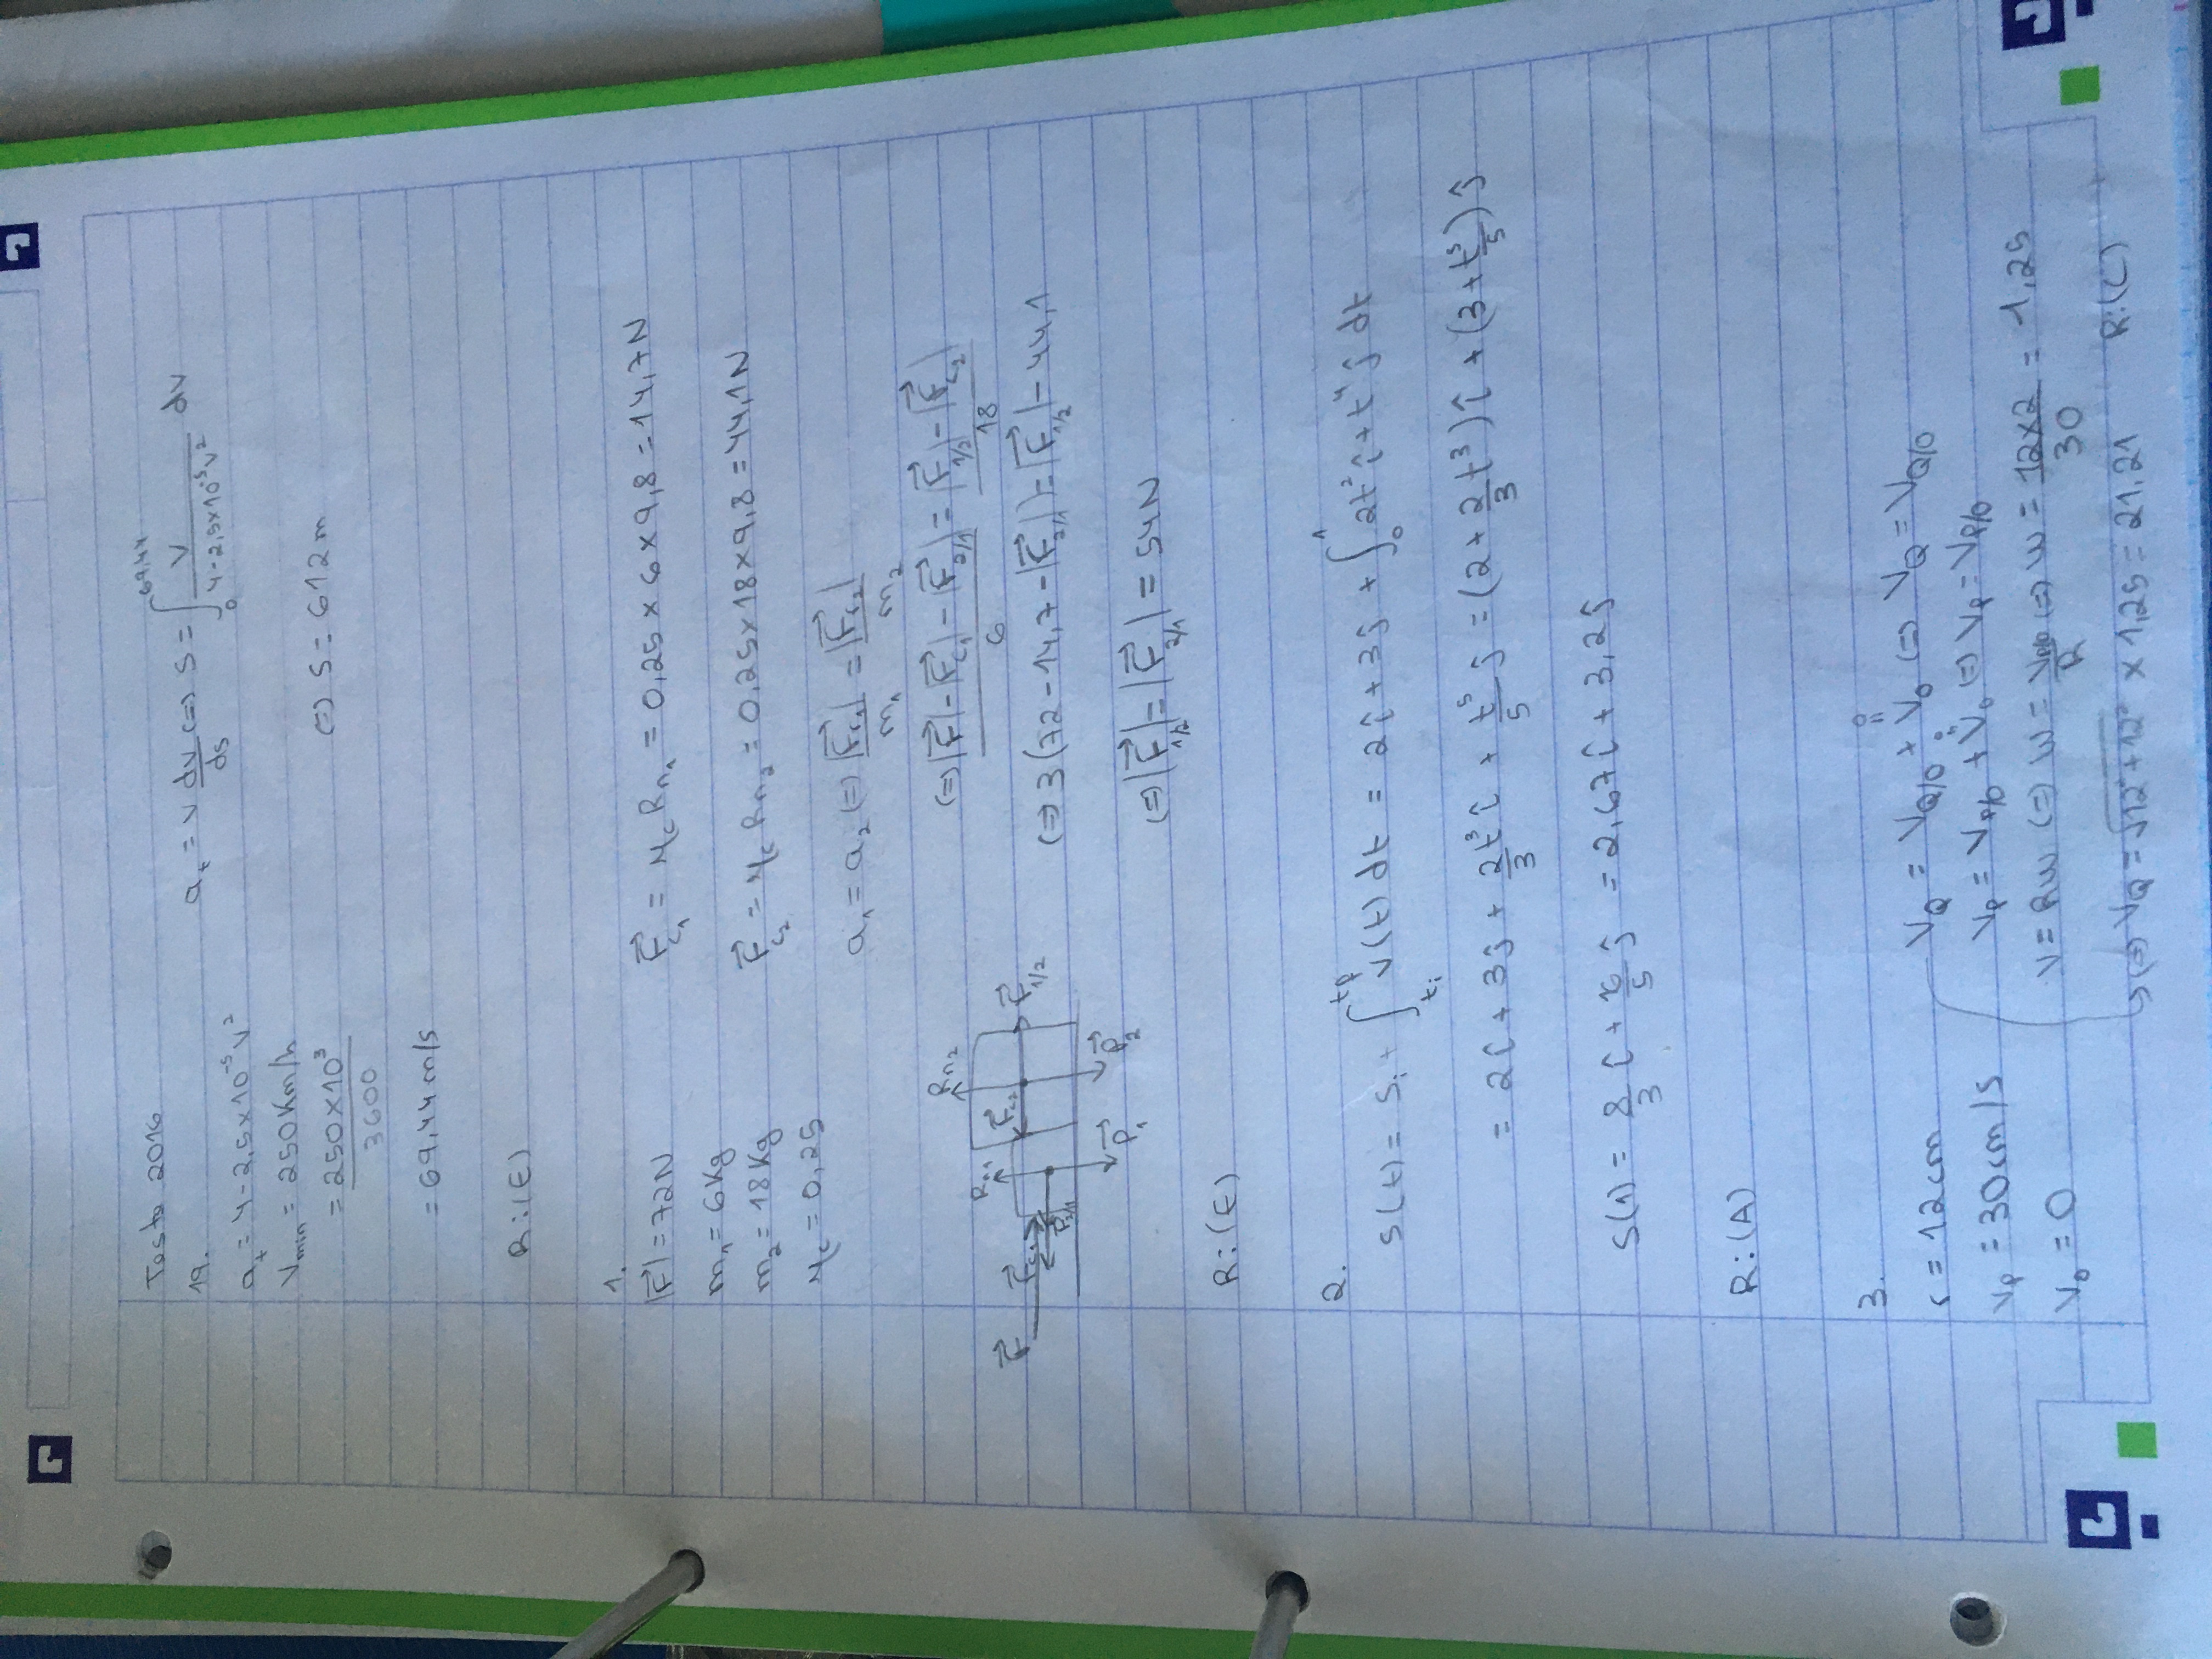 Teste 2016
19.
a_t = 4 - 2,5×10^-5 v^2
V_min = 250 Km/h
= 250×10^3 / 3600
= 69,44 m/s
a_t = v dv/ds (=) s = ∫_0^69,44 v / (4 - 2,5×10^-5 v^2) dv
(=) s = 612 m
R:(E)
1.
|F⃗| = 72N
m_1 = 6Kg
m_2 = 18Kg
μ_c = 0,25
F⃗_c1 = μ_c R_n1 = 0,25 × 6 × 9,8 = 14,7N
F⃗_c2 = μ_c R_n2 = 0,25×18×9,8 = 44,1N
a_1 = a_2 (=) |F⃗_r1| / m_1 = |F⃗_r2| / m_2
(=) (|F⃗| - |F⃗_c1| - |F⃗_2/1|) / 6 = (|F⃗_1/2| - |F⃗_c2|) / 18
(=) 3(72 - 14,7 - |F⃗_2/1|) = |F⃗_1/2| - 44,1
(=) |F⃗_1/2| = |F⃗_2/1| = 54N
F⃗ F⃗_c1 F⃗_2/1 R_n1 F⃗_c2 R_n2 F⃗_1/2
P⃗_1 P⃗_2
R:(E)
2.
s(t) = s_i + ∫_ti^tf v(t) dt = 2î + 3ĵ + ∫_0^1 2t^2 î + t^4 ĵ dt
= 2î + 3ĵ + 2/3 t^3 î + t^5/5 ĵ = (2 + 2/3 t^3) î + (3 + t^5/5) ĵ
s(1) = 8/3 î + 16/5 ĵ = 2,67î + 3,2ĵ
R:(A)
3.
r = 12cm
v_p = 30cm/s
v_o = 0
V_Q = V_Q/O + V_o (=) V_Q = V_Q/O
V_P = V_P/O + V_o (=) V_P = V_P/O
V = RW (=) W = V_P/O / R (=) W = 12×2 / 30 = 1,25
(=) V_Q = √(12^2+12^2) × 1,25 = 21,21
R:(C)